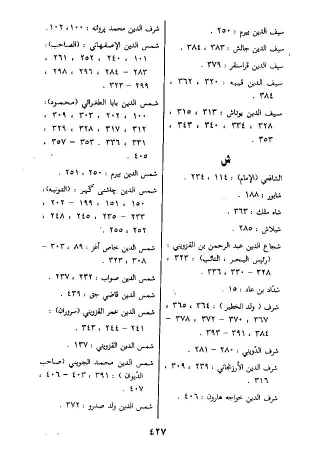 سيف الدين بيرم : ٢٥٠ .
سيف الدين جالش : ٣٨٣ ، ٣٨٤ .
سيف الدين قراسنقر : ٣٧٩ .
سيف الدين قيبه : ٣٢٠ ، ٣٦٢ ،
٣٨٤ .
سيف الدين يوتاش : ٣١٣ ، ٣١٥ ،
٣٢٨ ، ٣٣٤ ، ٣٤٠ ، ٣٤٣ ،
٣٥٣ .
ش
الشافعي (الإمام) : ١١٤ ، ٢٣٤ .
شابور : ١٨٨ .
شاه ملك : ٣٦٣ .
شيلاش : ٢٨٥ .
شجاع الدين عبد الرحمن بن القزويني :
(رئيس البحر ، النائب) : ٣٢٣ ،
٣٢٨ – ٣٣٠ ، ٣٣٦ .
شدّاد بن عاد : ١٥ .
شرف ( ولد الخطير ) : ٣٦٤ ، ٣٦٥ ،
٣٦٧ ، ٣٧٠ – ٣٧٢ ، ٣٧٨ –
٣٨٤ ، ٣٩١ – ٣٩٣ .
شرف الدّويني : ٢٨٠ – ٢٨١ .
شرف الدين الأرزنجاني : ٢٣٩ ، ٣٠٩ ،
٣١٦ .
شرف الدين خواجه هارون : ٤٠٦ .
شرف الدين محمد پروانه : ١٠٠ ، ١٠٢ .
شمس الدين الإصفهاني : (الصاحب) :
١٠١ ، ٢٤٠ ، ٢٥٢ ، ٢٦١ ،
٢٨٣ – ٢٨٤ ، ٢٩٦ ، ٢٩٨ ،
٢٩٩ – ٣٢٣ .
شمس الدين بابا الطغرائي (محمود) :
١٠٠ ، ٢٠٢ ، ٣٠٣ ، ٣٠٩ ،
٣١٢ ، ٣١٧ ، ٣٢٨ ، ٣٢٩ ،
٣٣١ ، ٣٣٦ ، ٣٥٣ – ٣٥٧ ،
٤٠٥ .
شمس الدين بيرم : ٢٥٠ ، ٢٥١ .
شمس الدين چاشنى گير : (التونيه) :
١٥٠ ، ١٥١ ، ١٩٩ – ٢٠٢ ،
٢٣٣ – ٢٣٥ ، ٢٤٥ ، ٢٤٨ ،
٢٥٢ ، ٢٥٥ .
شمس الدين خاص أغز : ٨٩ ، ٣٠٣ –
٣٠٨ ، ٣٢٣ .
شمس الدين صواب : ٢٣٢ ، ٢٣٧ .
شمس الدين قاضي جق : ٤٣٩ .
شمس الدين عمر القزويني (سروران) :
٢٤١ – ٢٤٤ ، ٣٤٣ .
شمس الدين القزويني : ١٣٧ .
شمس الدين محمد الجويني (صاحب
الدّيوان ) : ٣٩١ ، ٤٠٣ – ٤٠٦ ،
٤٠٧ .
شمس الدين ولد صدرو : ٣٧٢ .
٤٢٧